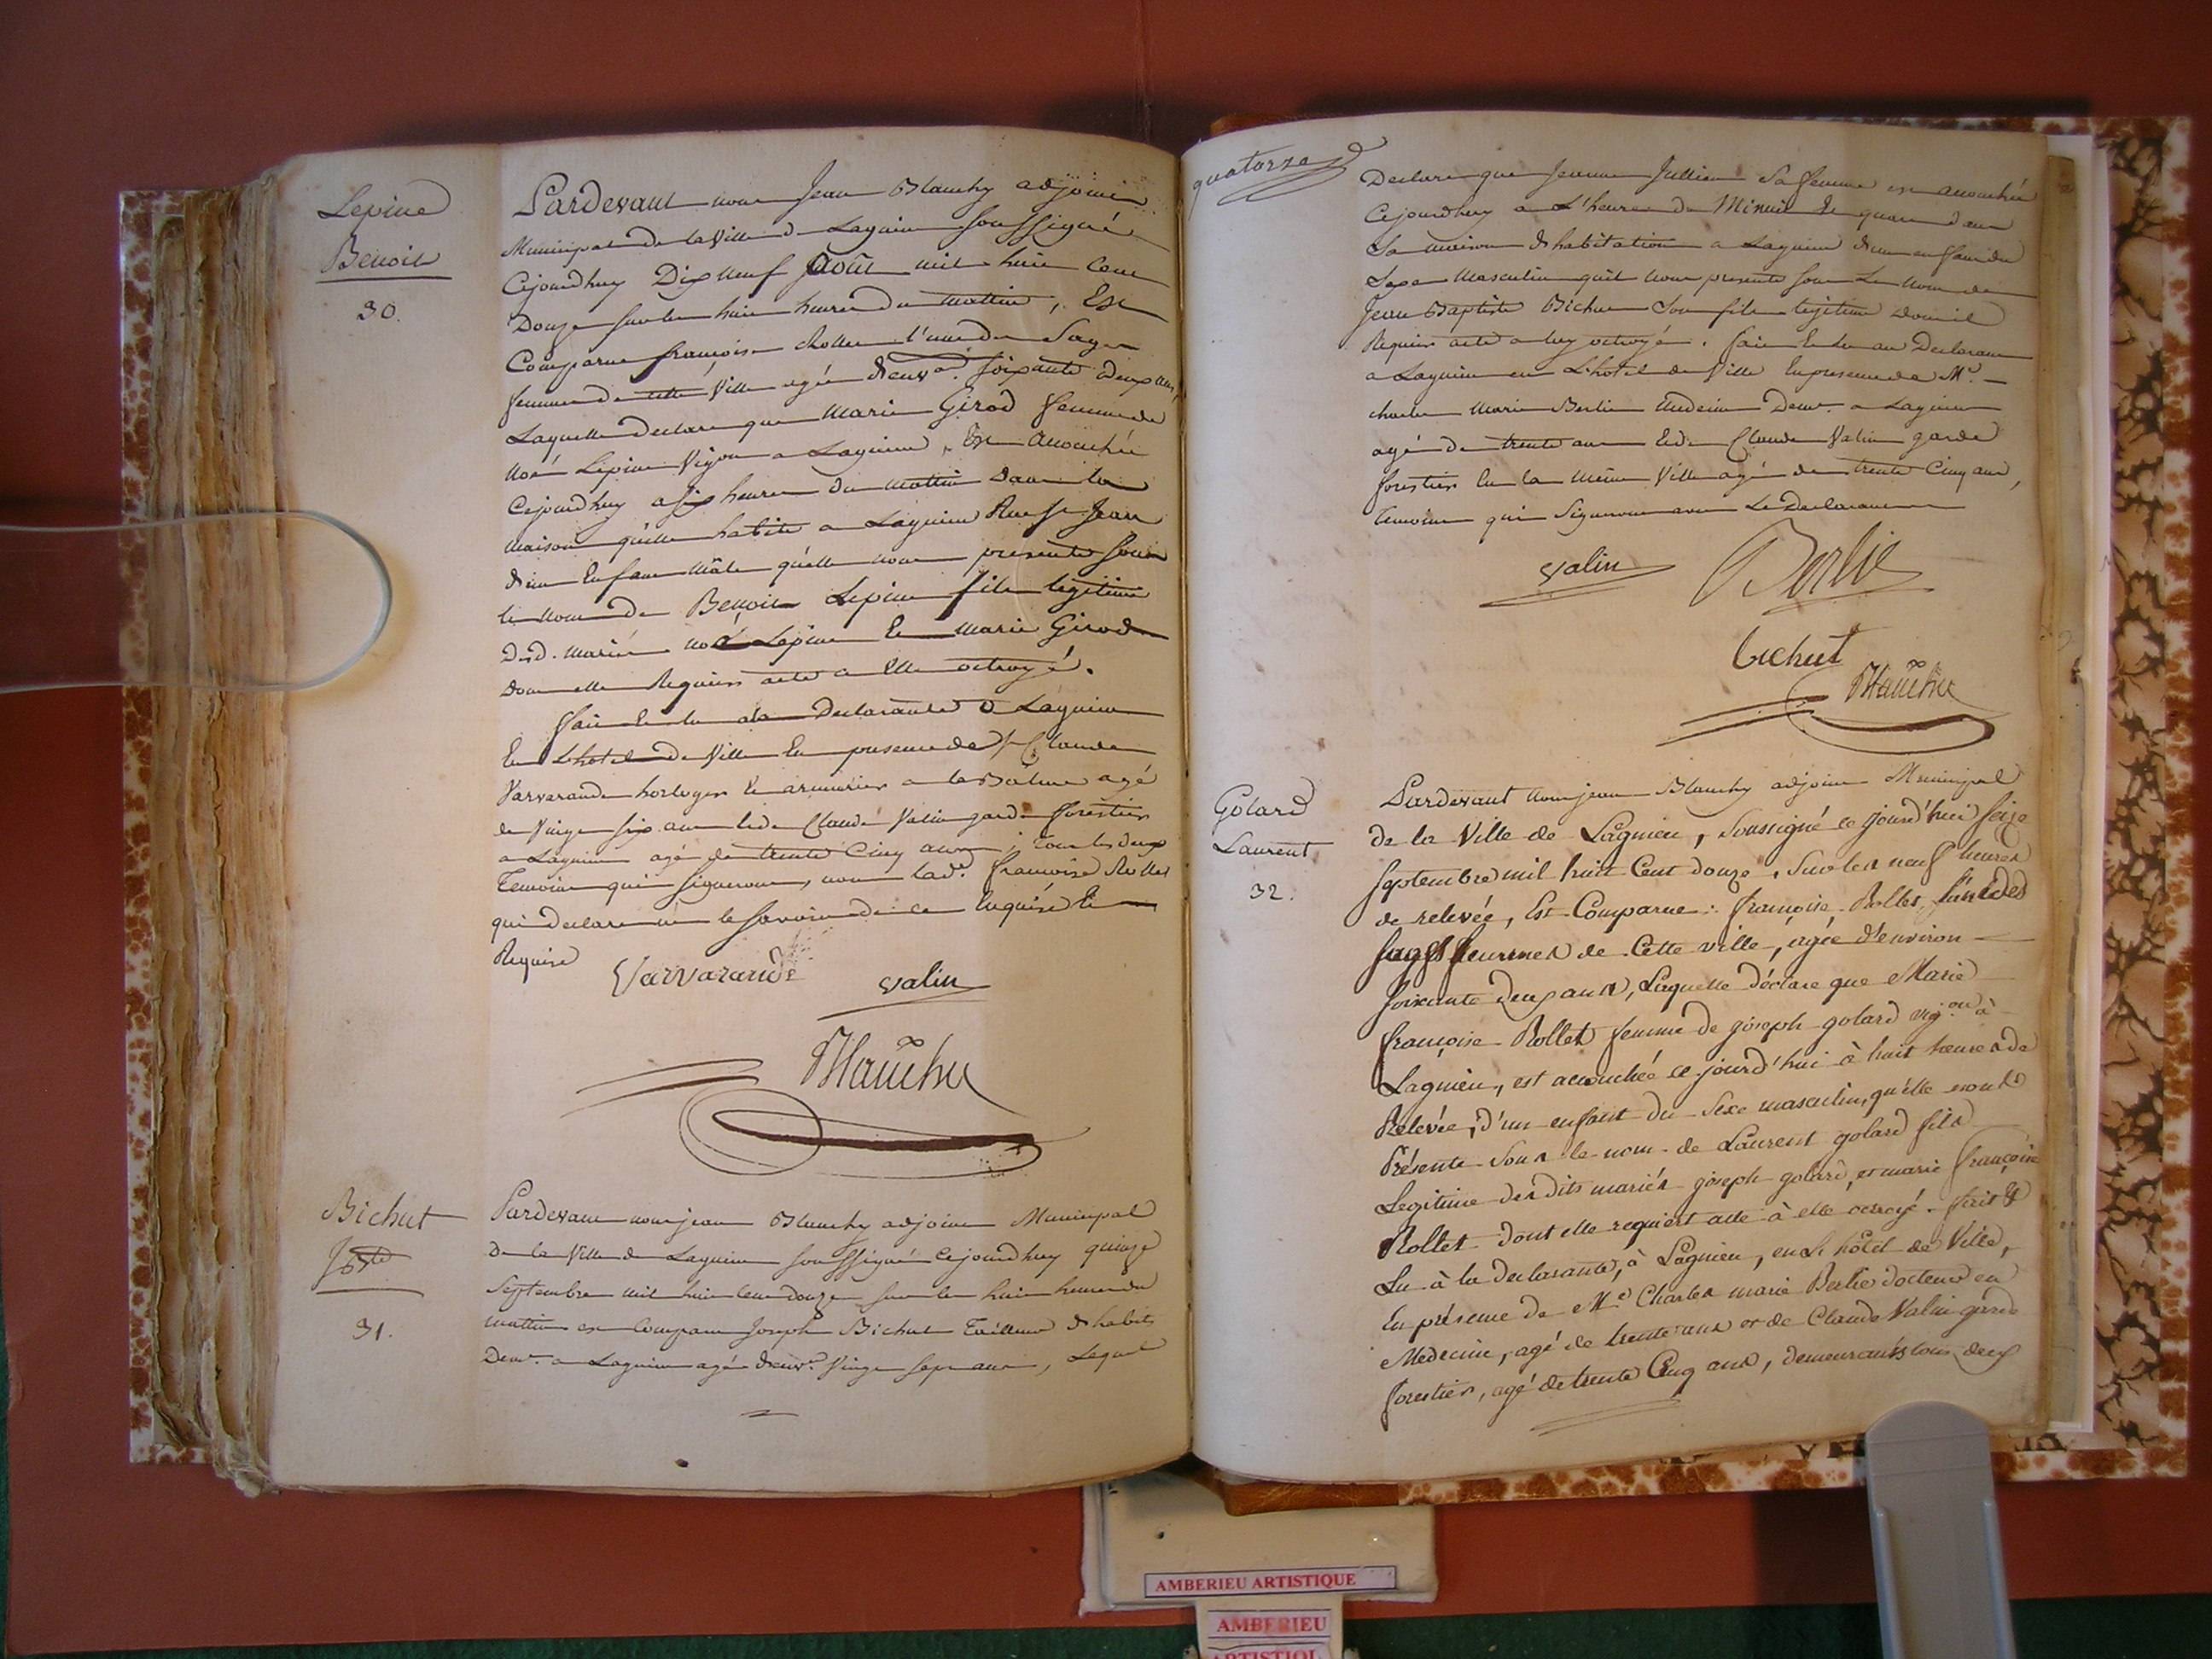 Lepine
Benoit
30.
Pardevant nous Jean Blanchy adjoint
Municipal de la Ville de Lagnieu soussigné
Cejourdhuy Dix neuf Août mil huit Cent
Douze sur les huit heures du mattin, Est
Comparue françoise Rollet l'une des Sages
femmes de cette Ville agée d'env.on soixante deux ans,
Laquelle declare que Marie Girod femme de
Noé Lepine Vigon a Lagnieu, Est Accouchée
Cejourdhuy a six heures du mattin dans la
maison qu'elle habite a Lagnieu Rue St Jean
d'un Enfant mâle qu'elle nous presente sous
le nom de Benoit Lepine fils legitime
Desd. mariés Noé Lepine Et Marie Girod
dont elle Requiert acte a Elle octroyé.
fait Et lu a la Declarante a Lagnieu
En L'hotel de Ville En presence de Sr Claude
Varvarande horloger Et armurier a la Balme agé
de Vingt six ans Et de Claude Valin garde forestier
a Lagnieu agé de trente Cinq ans; tous les deux
Temoins qui signeront, non lad.e françoise Rollet
qui declare ne le savoir de ce Enquise Et
Requise
Varvarande
valin
Blanchy
Bichut
J Bte
31.
Pardevant nous jean Blanchy adjoint Municipal
De la Ville de Lagnieu soussigné Cejourdhuy quinze
Septembre mil huit Cent douze sur les huit heures du
mattin est Comparu Joseph Bichut Tailleur d'habits
Demt. a Lagnieu agé d'env.on Vingt sept ans, Lequel
quatorze
Declare que Jeanne Jullien Sa femme est accouchée
Cejourdhuy a L'heure de Minuit Et quart dans
Sa maison d'habitation a Lagnieu d'un enfant du
Sexe Masculin qu'il nous presente sous Le Nom de
Jean Baptiste Bichut Son fils legitime dont il
Requiert acte a luy octroyé. fait Et lu au Declarant
a Lagnieu en L'hotel de Ville En presence de Mr.
charles Marie Berlie Medecin Demt. a Lagnieu
agé de trente ans Et de Claude Valin garde
forestier En la même Ville agé de trente Cinq ans,
temoins qui Signeront avec Le Declarant
valin
Berlie
bichut
Blanchy
Golard
Laurent
32.
Pardevant nous jean Blanchy adjoint Municipal
de la Ville de Lagnieu, Soussigné ce jourd'hui seize
septembre mil huit Cent douze, sur les neuf heures
de relevée, Est Comparue: françoise Rollet, l'une des
sages femmes de Cette ville, agée d'environ
soixante deux ans, Laquelle déclare que Marie
françoise Rollet femme de joseph golard vig.on à
Lagnieu, est accouchée ce jourd'hui à huit heures de
Relevée, d'un enfant du Sexe masculin, qu'elle nous
Présente Sous le nom de Laurent golard fils
Legitime des dits mariés joseph golard, et marie françoise
Rollet dont elle requiert acte à elle octroyé. fait &
Lu à la declarante, à Lagnieu, en L'hôtel de Ville,
En présence de Mr. Charles marie Berlie docteur en
Medecine, agé de trente ans et de Claude Valin garde
forestier, agé de trente Cinq ans, demeurants tous deux
AMBERIEU ARTISTIQUE
AMBERIEU